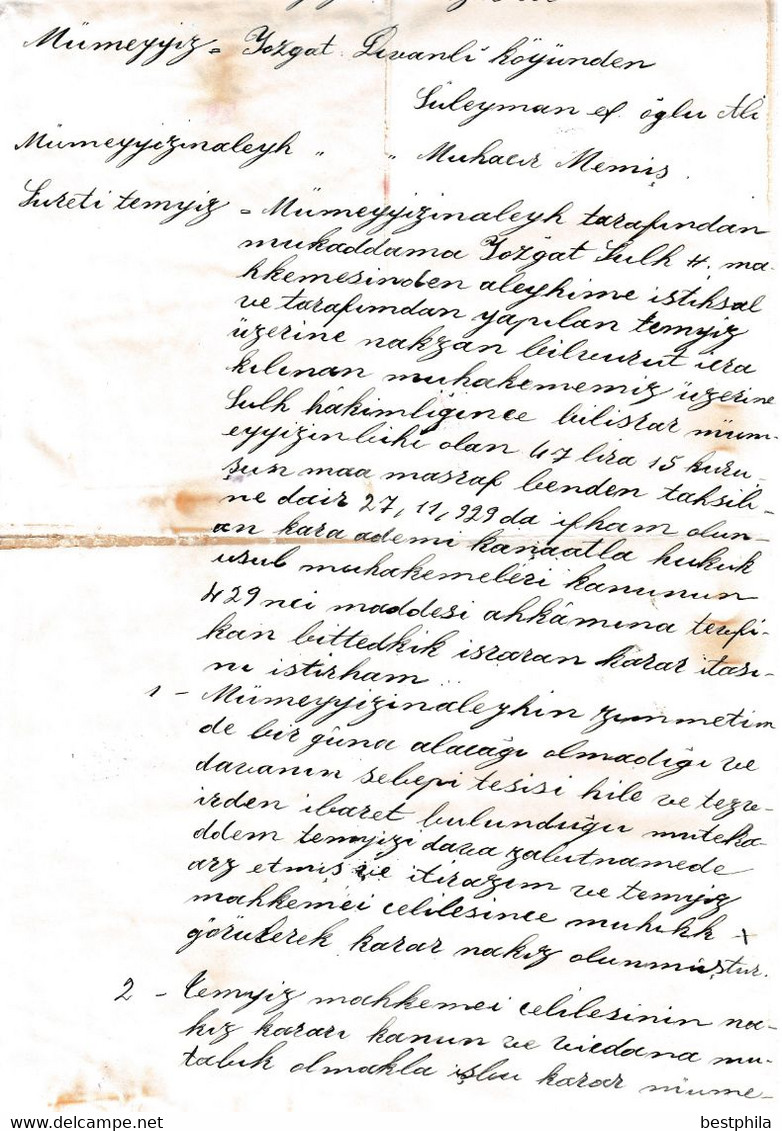 Mümeyyiz = Yozgat. Divanli köyünden
Süleyman ef. oğlu Ali
Mümeyyizinaleyh " " Muhacır Memiş.
Sureti temyiz = Mümeyyizinaleyh tarafından
mukaddama Yozğat Sulh H. ma-
hkemesinden aleyhime istihsal
ve tarafımdan yapılan temyiz
üzerine nakzan bilvurut icra
kılınan muhakememiz üzerine
Sulh hâkimliğince bilisrar müm-
eyyizinbihi olan 47 lira 15 kuru-
şun maa masraf benden tahsili-
ne dair 27, 11, 929 da ifham olun-
an kara ademi kanaatla hukuk
usul muhakemeleri kanunun
429 nci maddesi ahkâmına terfi-
kan bittedkik israran karar itası-
nı istirham...
1 - Mümeyyizinaleyhin zimmetim
de bir gûna alacağı olmadığı ve
davanın sebepi tesisi hile ve tezv-
irden ibaret bulunduğu muteka-
ddem temyizi dava zabıtnamede
arz etmiş ve itirazım ve temyiz
mahkemei celilesince muhıkk
görülerek karar nakız olunmuştur.
2 - Temyiz mahkemei celilesinin na-
kız kararı kanun ve vicdana mu-
tabık olmakla işbu karar müme-
bestphila